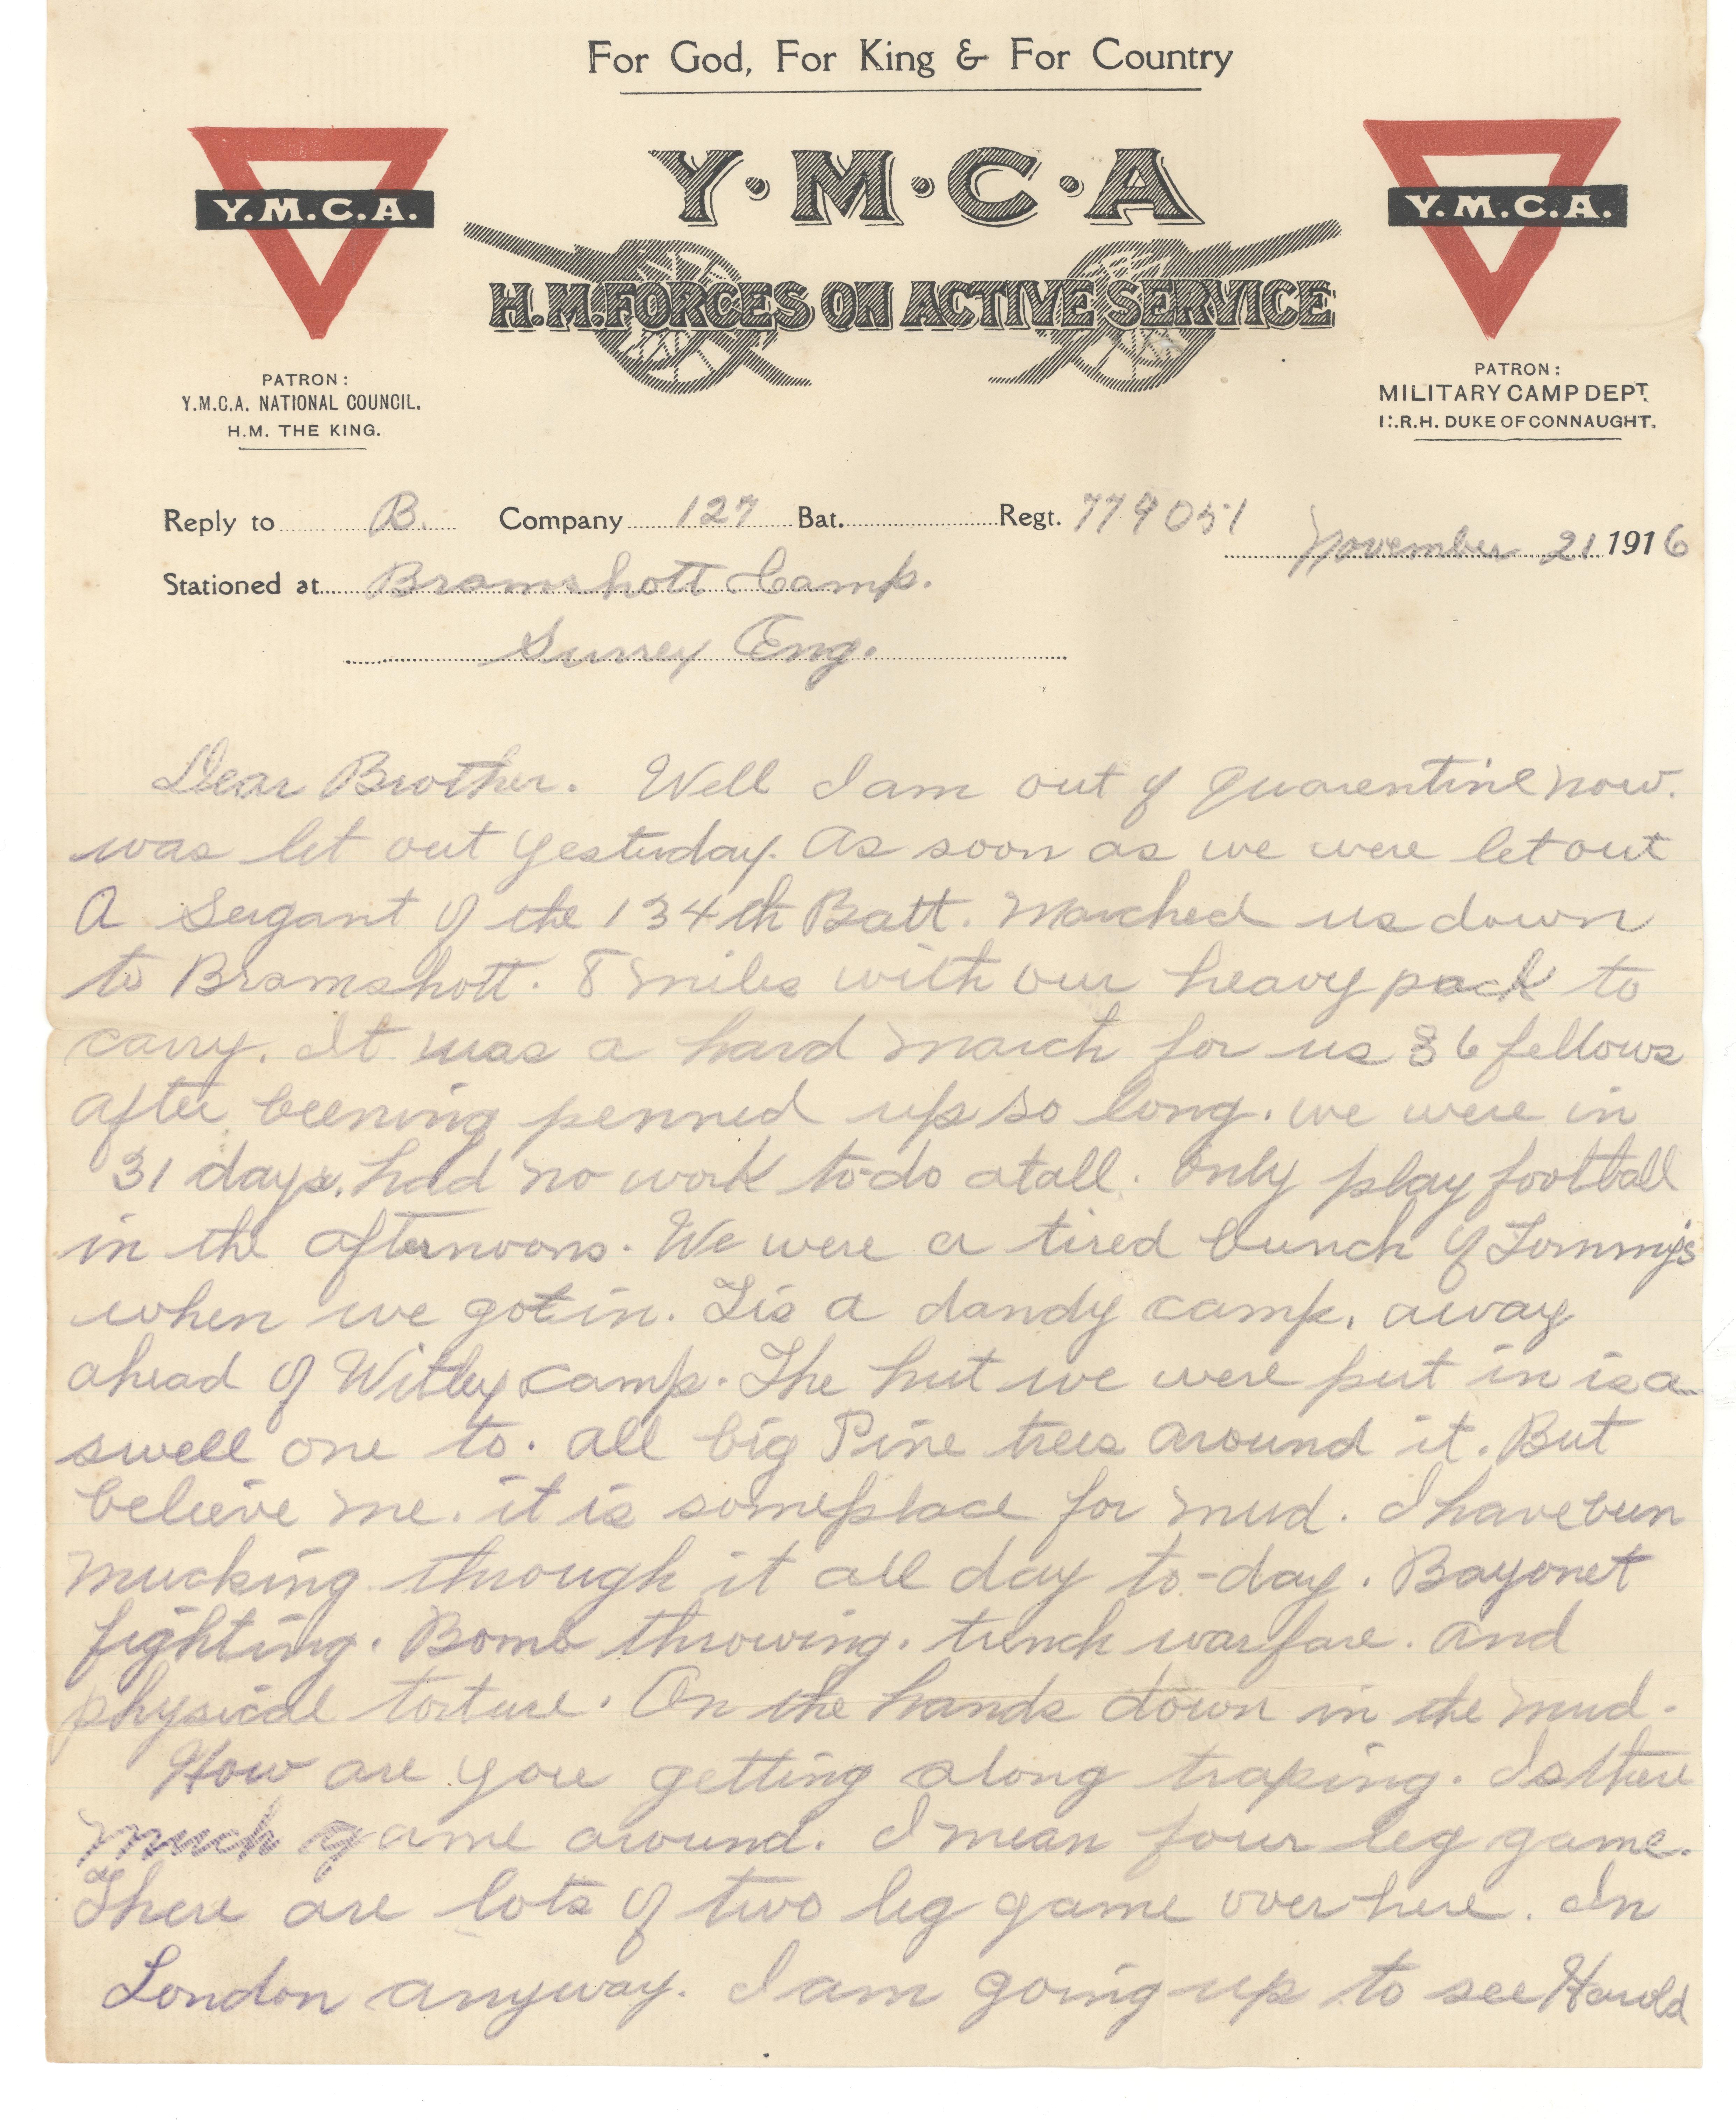 For God, For King & For Country
Y·M·C·A
Y.M.C.A.
Y.M.C.A.
H.M. FORCES ON ACTIVE SERVICE
PATRON:
Y.M.C.A. NATIONAL COUNCIL.
H.M. THE KING.
PATRON:
MILITARY CAMP DEPT.
H.R.H. DUKE OF CONNAUGHT.
Reply to B. Company 127 Bat. Regt. 779051
November 21 1916
Stationed at Bramshott Camp.
Surrey Eng.
Dear Brother. Well I am out of quarentine now.
was let out yesterday. As soon as we were let out
A Sergant of the 134th Batt. Marched us down
to Bramshott. 8 miles with our heavy pack to
carry. It was a hard march for us 86 fellows
after beening penned up so long. we were in
31 days. had no work to do atall. Only play football
in the afternoons. We were a tired bunch of Tommy's
when we got in. Tis a dandy camp. away
ahead of Witley camp. The hut we were put in is a
swell one to. all big Pine trees around it. But
believe me. it is someplace for mud. I have been
mucking through it all day to-day. Bayonet
fighting. Bomb throwing. trench warfare. and
physical torture. On the hands down in the mud.
How are you getting along traping. Is there
much game around. I mean four leg game.
There are lots of two leg game over here. In
London anyway. I am going up to see Harold